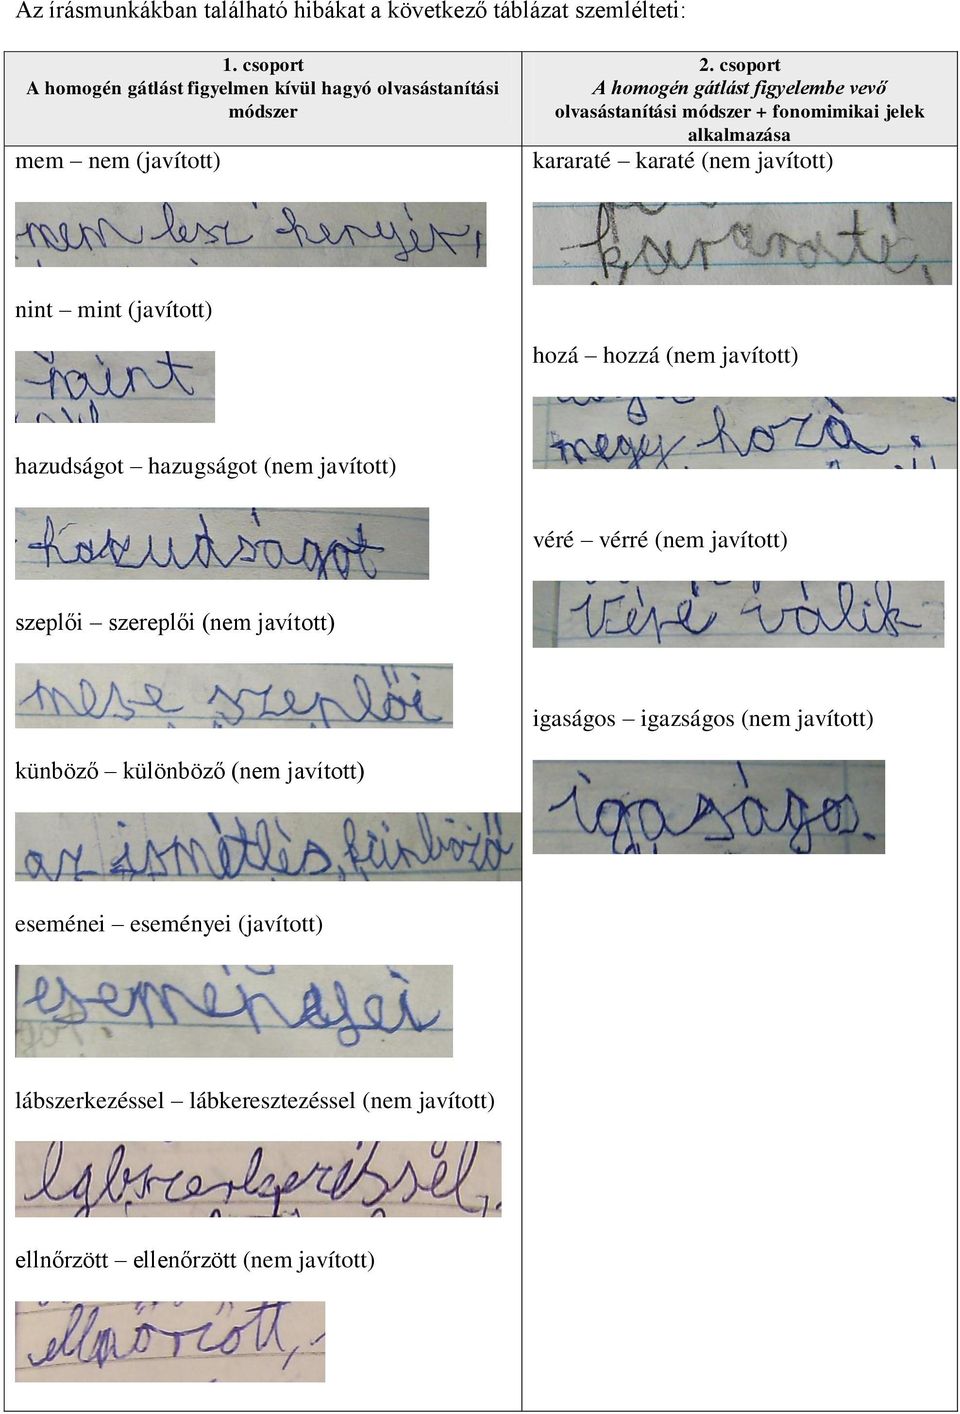 Az írásmunkákban található hibákat a következő táblázat szemlélteti:
1. csoport
A homogén gátlást figyelmen kívül hagyó olvasástanítási
módszer
mem – nem (javított)
nem lesz kenyér,
nint – mint (javított)
mint
hazudságot – hazugságot (nem javított)
hazudságot
szeplői – szereplői (nem javított)
mese szeplői
künböző – különböző (nem javított)
az ismétlés, künböző
eseménei – eseményei (javított)
eseményei
lábszerkezéssel – lábkeresztezéssel (nem javított)
lábszerkezéssel,
ellnőrzött – ellenőrzött (nem javított)
ellnőrzött,
2. csoport
A homogén gátlást figyelembe vevő
olvasástanítási módszer + fonomimikai jelek
alkalmazása
kararaté – karaté (nem javított)
kararaté,
hozá – hozzá (nem javított)
megy hozá.
véré – vérré (nem javított)
véré válik
igaságos – igazságos (nem javított)
igaságos.